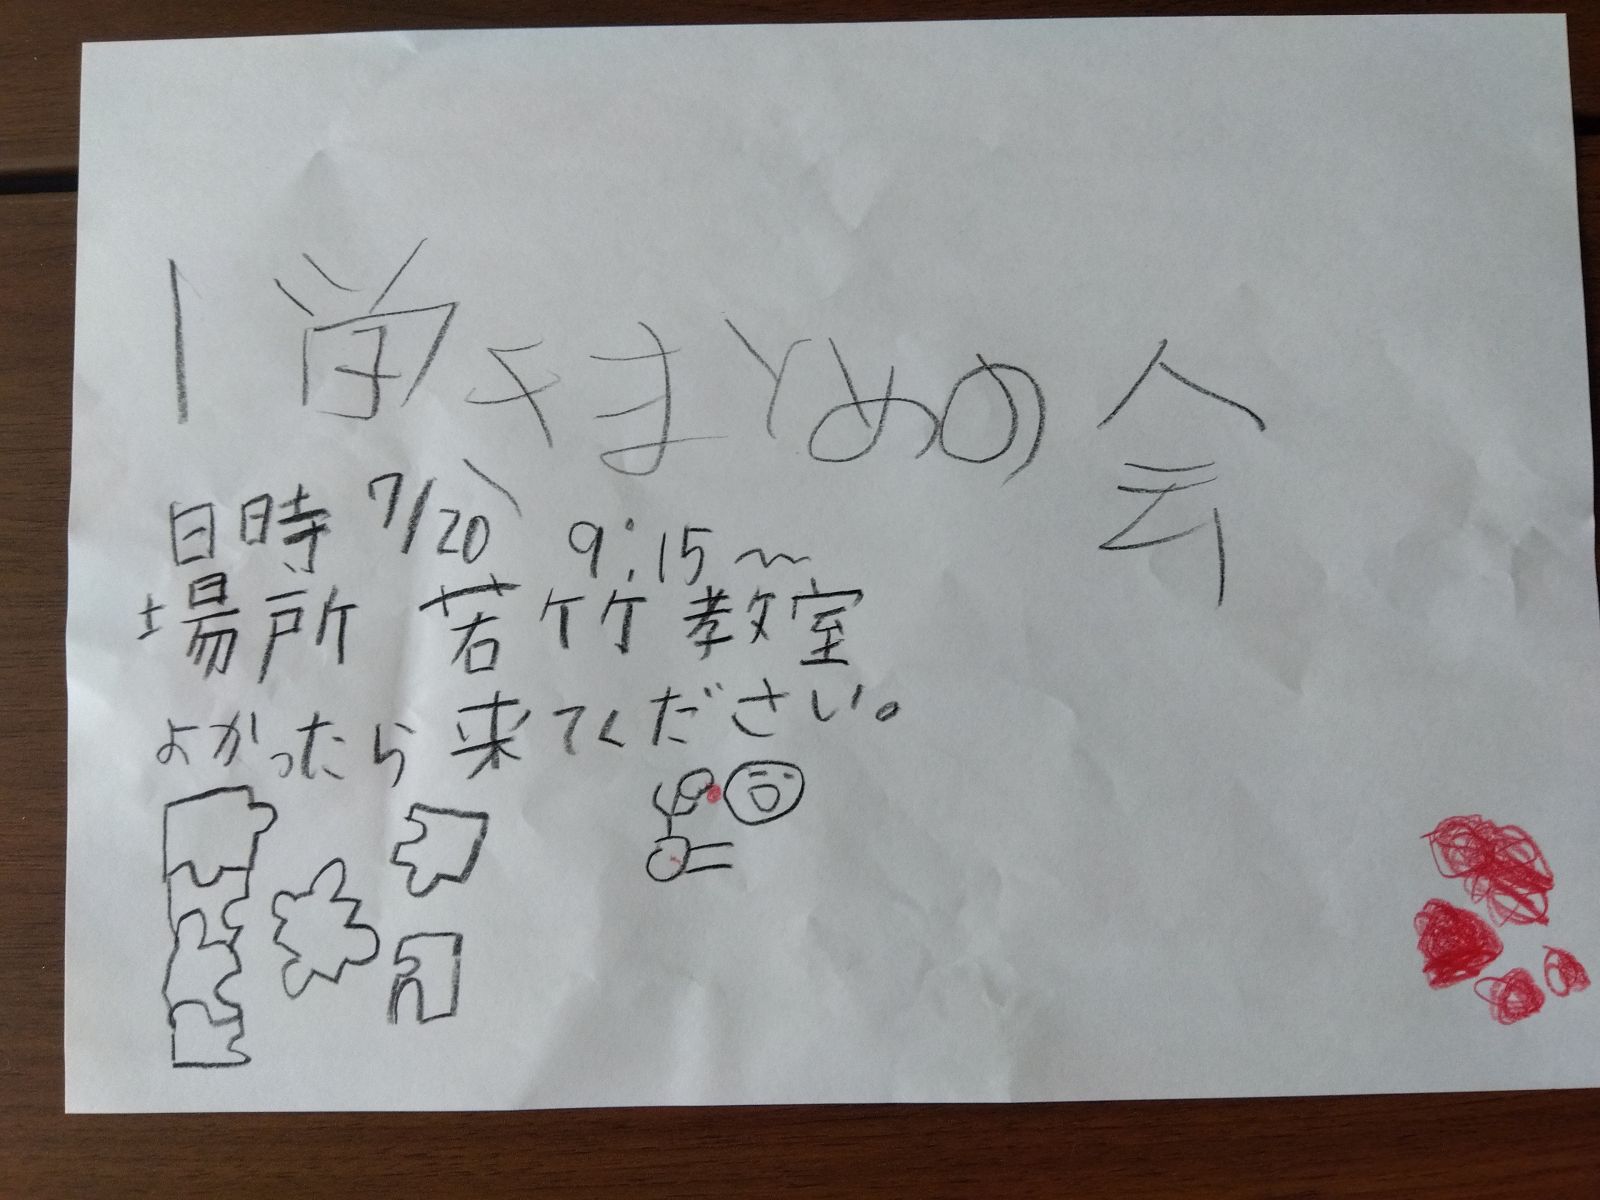 1学きまとめの会
日時 7/20 9:15〜
場所 若竹教室
よかったら来てください。